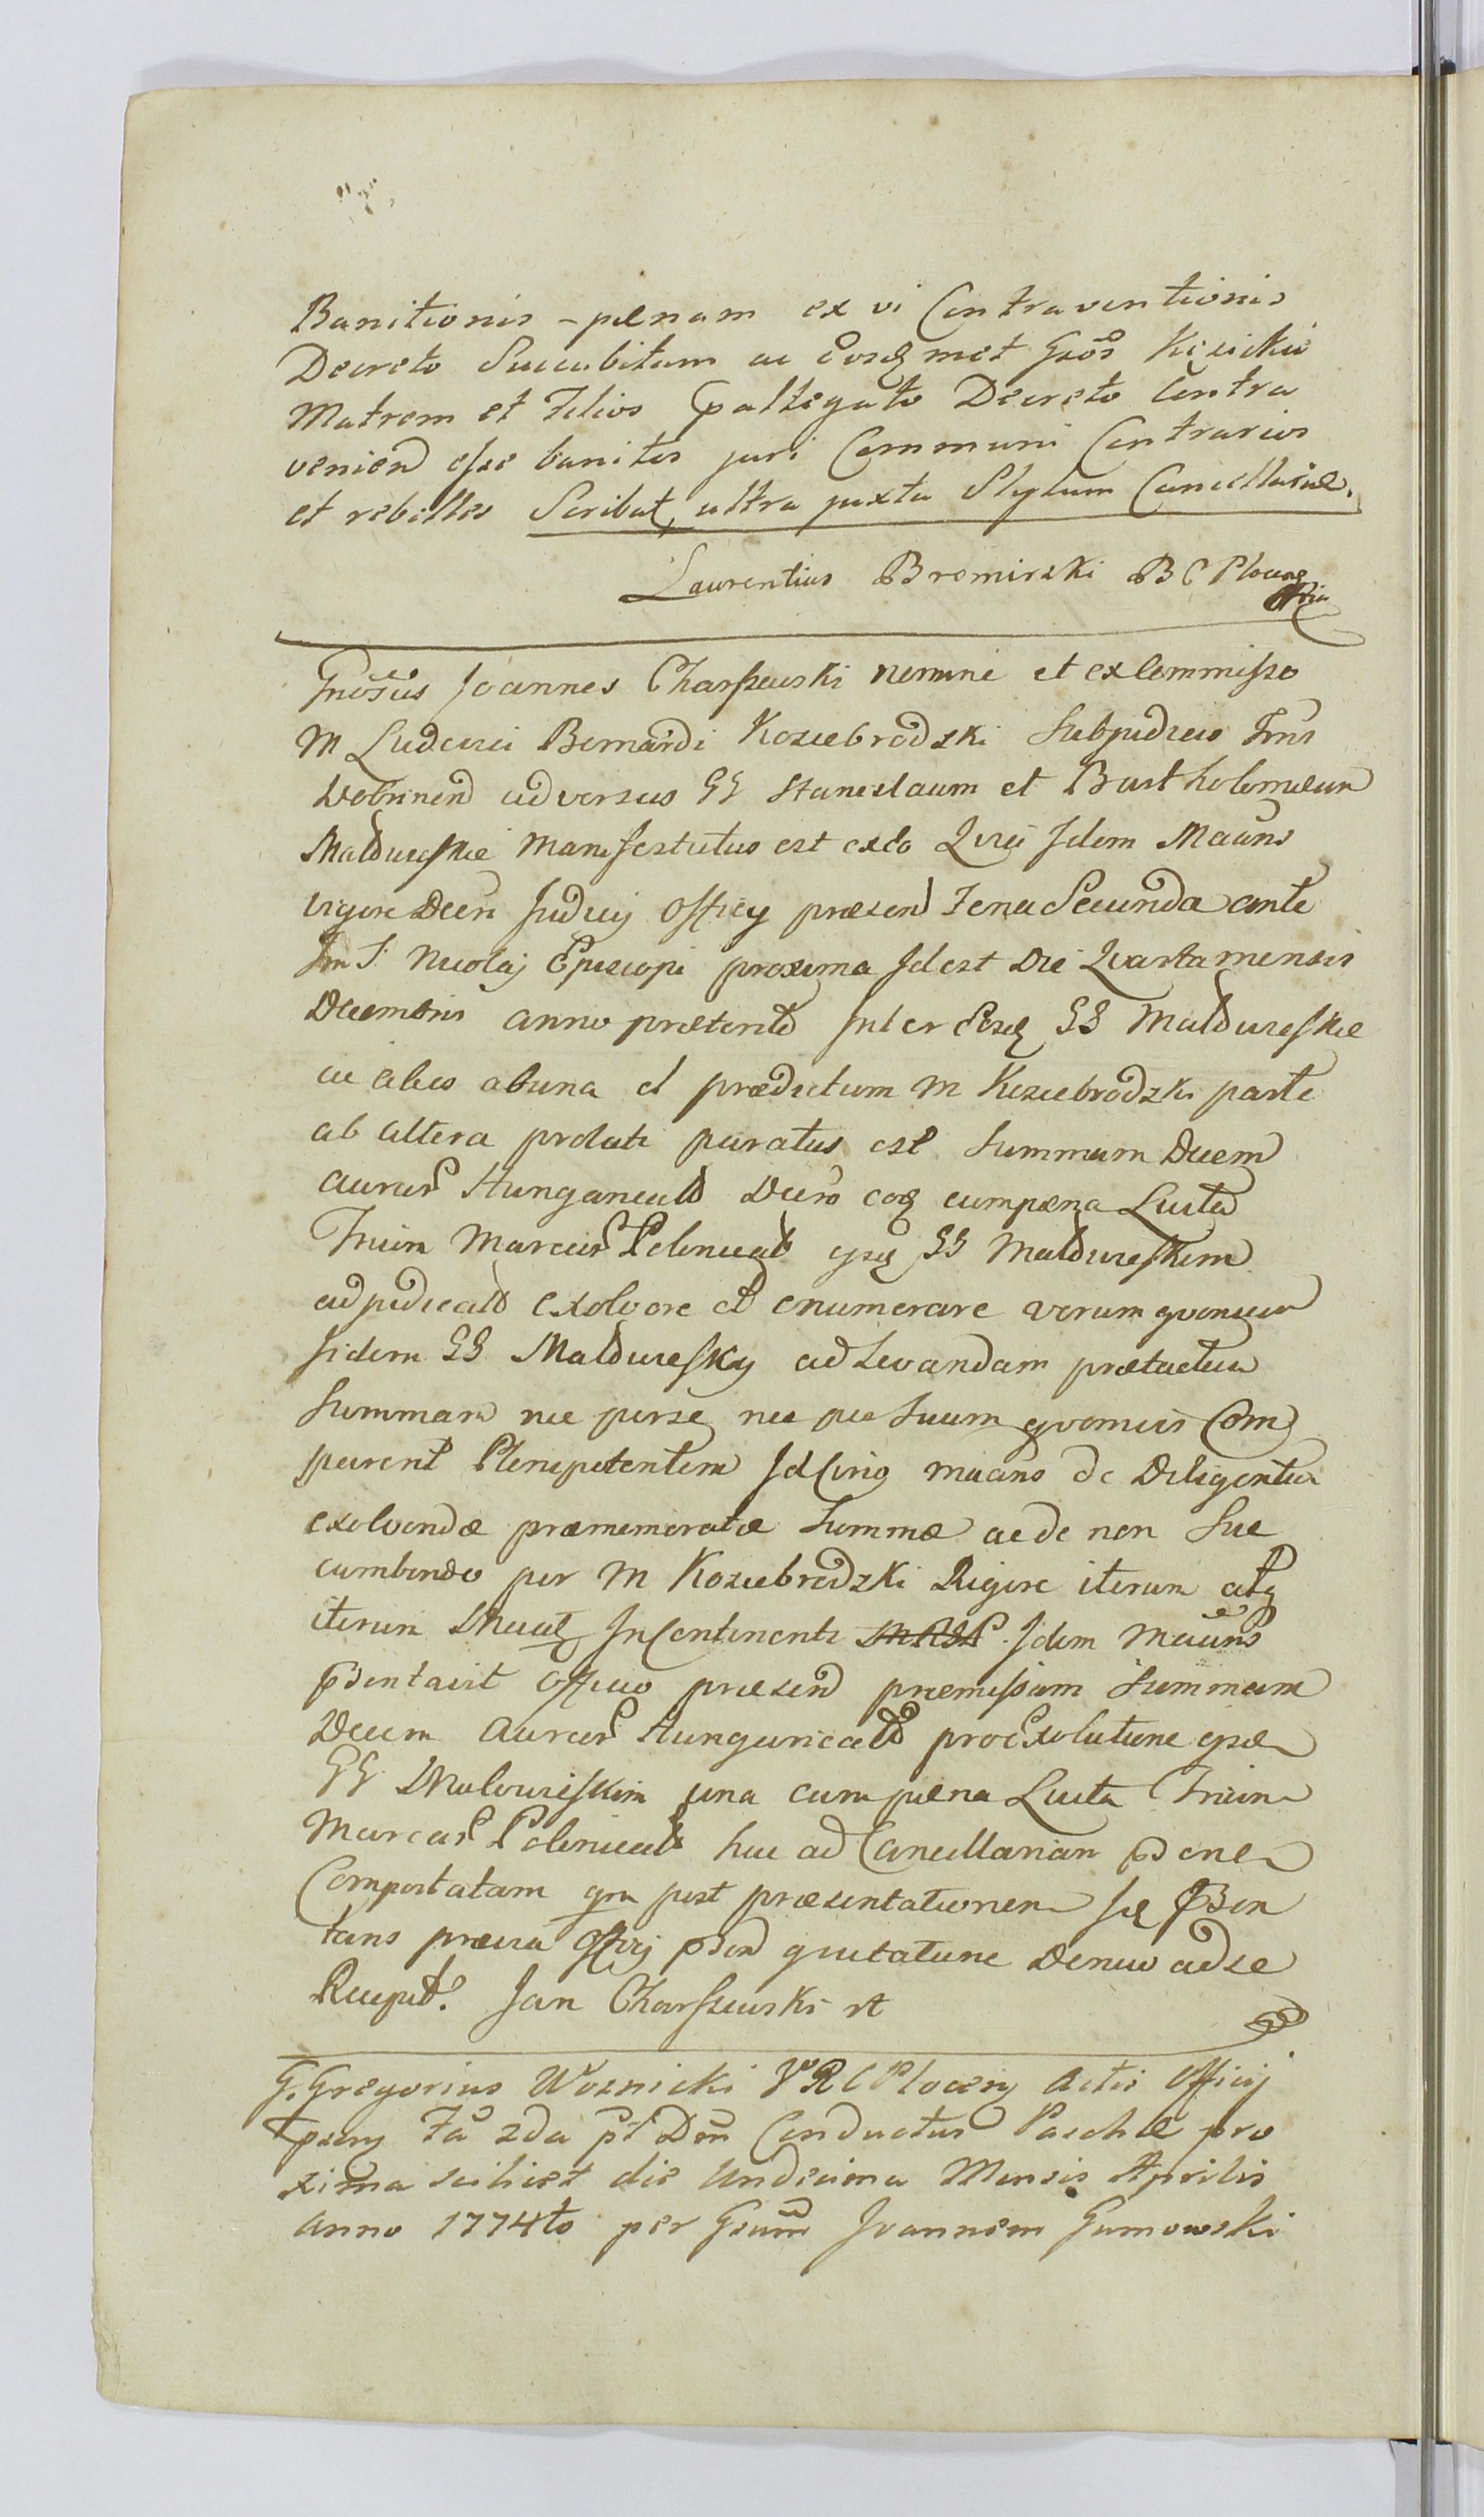 Banitionis - pænam ex vi Contraventionis
Decreto Succubitam ac Eosq met Gsos Kęsickie
Matrem et Filios pallegato Decreto Contra
venien esse banitos juri Communi Contrarios
et rebelles Scribat, ultra juxta Stylum Cancellariæ.
Laurentius Bromirski B C Plocens
Gnosus Joannes Charszewski nomine et ex Commisso
M Ludovici Bernardi Koziebrodzki Subjudicis Trris
Wobrinen adversus GG Stanislaum et Bartholomæum
Maldureskie Manifestatus est exeo Quia Idem Maans
vigore Decri Judicij Officij præsen Feria Secunda ante
Fm S. Nicolaj Episcopi proxima Idest Die Quarta mensis
Decembris anno præterito Inter Eosq GG Maldureskie
ac alios ab una et prædictum M Koziebrodzki parte
ab altera prolati paratus est Summam Decem
aureor Hungarical Decro eoq cum pæna Luita
Trium Marcar Polonical ipsq GG Maldureskim
adjudicato exolvere et enumerare verum quoniam
Iidem GG Maldureskij ad Levandam prætactam
Summam nec per se nec per Suum quomvis Com
parent Plenipotentem Idcirco maans de Diligentia
exolvendæ præmemoratæ Summæ ac de non Suc
cumbendo per M Koziebrodzki Rigore iterum atq
iterum In Continenti Idem Maans
psentavit Officio præsen præmissam Summam
Decem Aureor Hungarical pro Exolutione ipse
GG Maldureskim una cum pæna Luita Trium
Marcar Polonical huc ad Cancellariam psene
Comportatam qm post præsentationem Ie psen
tans prævia Officij psen quietatione Denuo ad se
Recepit. Jan Charszewski
G. Gregorius Woznicki V R C Plocen Actis Officij
psens Fa 2da pt Dom Conductus Paschæ pro
xima scilicet die Undecima Mensis Aprilis
anno 1774to per Gsum Joannem Gumowski